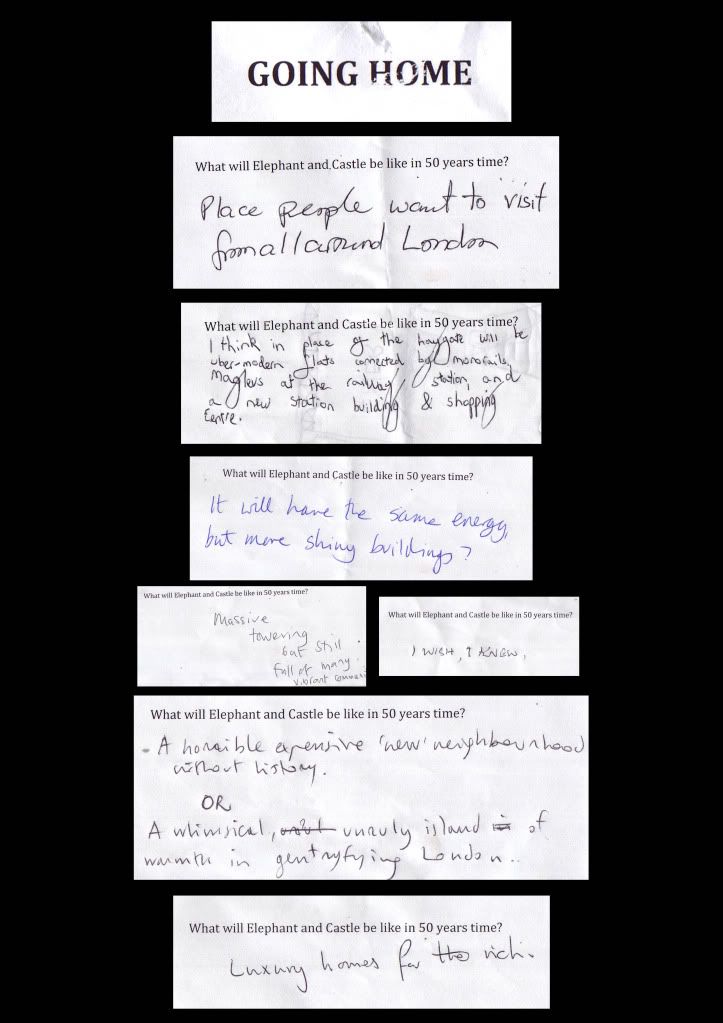 GOING HOME
What will Elephant and Castle be like in 50 years time?
Place people want to visit
from all around London
What will Elephant and Castle be like in 50 years time?
I think in place of the haygate will be
uber-modern flats connected by monorails,
Maglevs at the railway station, and
a new station building & shopping
Centre.
What will Elephant and Castle be like in 50 years time?
It will have the same energy,
but more shiny buildings?
What will Elephant and Castle be like in 50 years time?
Massive
towering
but still
full of many
vibrant
What will Elephant and Castle be like in 50 years time?
I WISH, I KNEW.
What will Elephant and Castle be like in 50 years time?
- A horrible expensive 'new' neighbourhood
without history.
OR
A whimsical, unruly island of
warmth in gentryfying London..
What will Elephant and Castle be like in 50 years time?
Luxury homes for the rich.